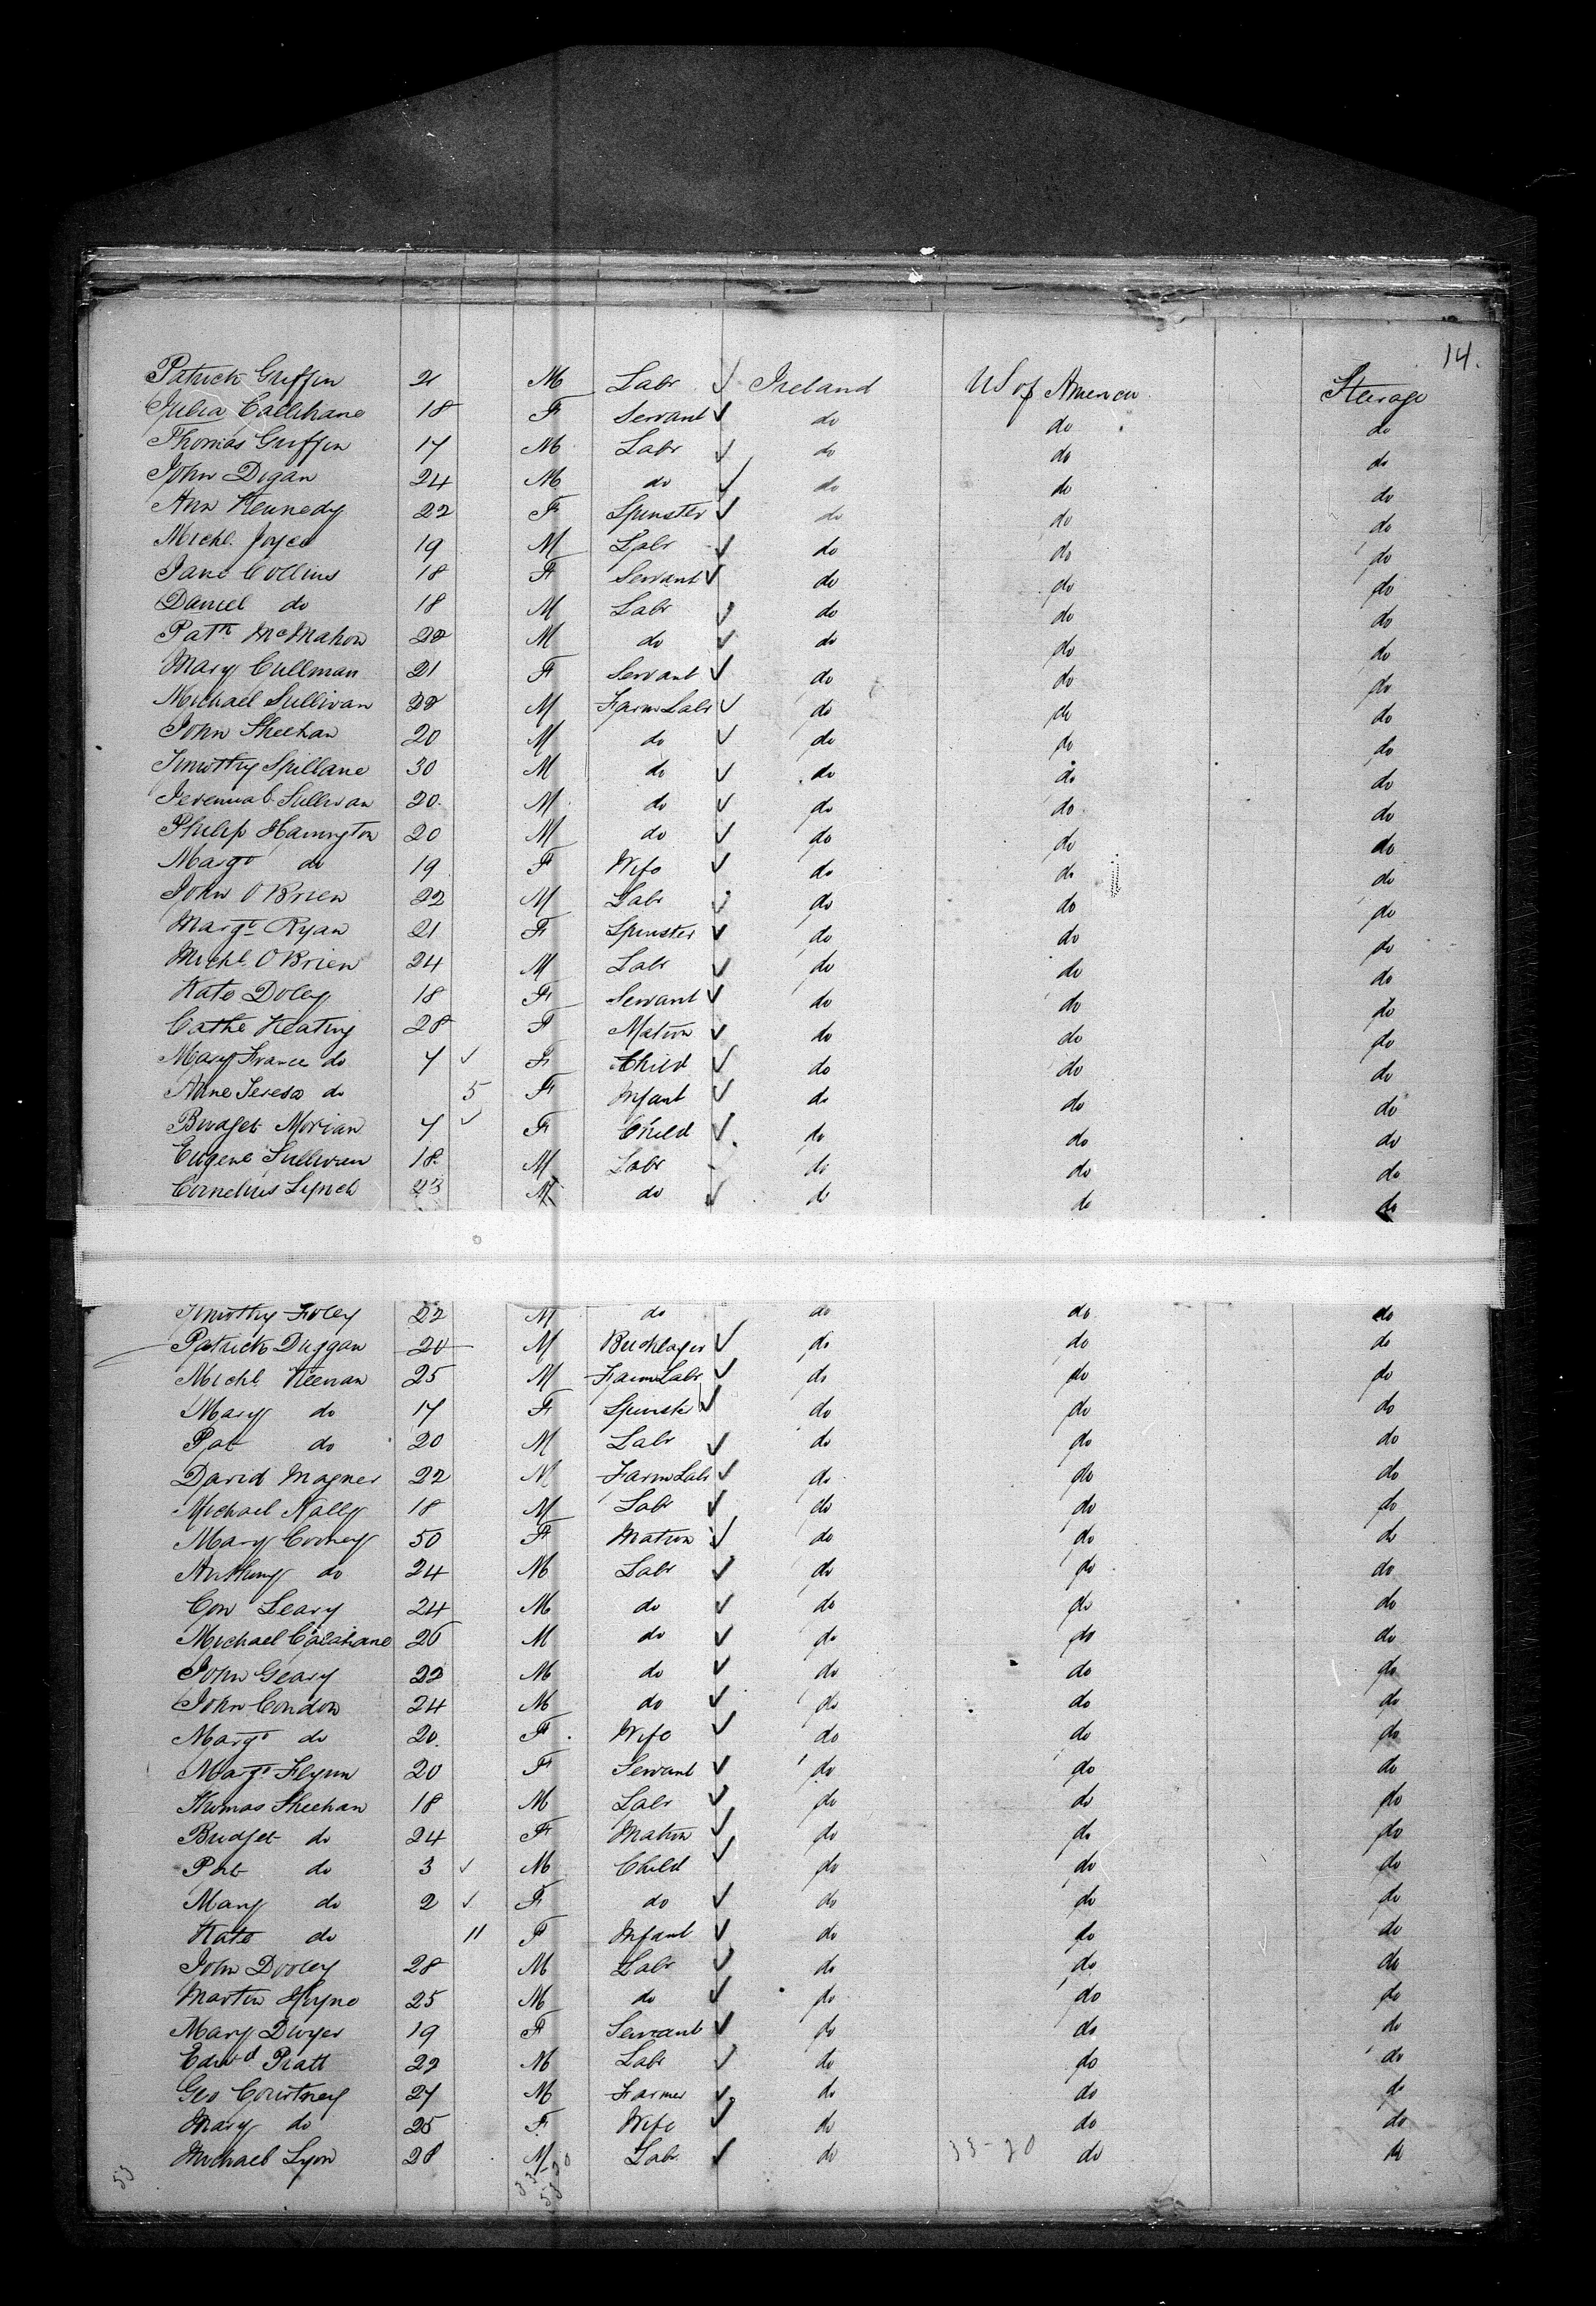 14.
Patrick Griffin 21 M Labr ✓ Ireland US of America Sterage
Julia Callihane 18 F Servant ✓ do do do
Thomas Griffin 17 M Labr ✓ do do do
John Digan 24 M do ✓ do do do
Ann Kennedy 22 F Spinster ✓ do do do
Michl. Joyce 19 M Labr ✓ do do do
Jane Collins 18 F Servant ✓ do do do
Daniel do 18 M Labr ✓ do do do
Patk McMahon 22 M do ✓ do do do
Mary Cullinan 21 F Servant ✓ do do do
Michael Sullivan 22 M Farm Labr ✓ do do do
John Sheehan 20 M do ✓ do do do
Timothy Spillane 30 M do ✓ do do do
Jeremiah Sullivan 20 M do ✓ do do do
Philip Harrington 20 M do ✓ do do do
Margt do 19 F Wife ✓ do do do
John O Brien 22 M Labr ✓ do do do
Margt Ryan 21 F Spinster ✓ do do do
Michl. O Brien 24 M Labr ✓ do do do
Kate Doley 18 F Servant ✓ do do do
Cathe Keating 28 F Matron ✓ do do do
Mary France do 7 ✓ F Child ✓ do do do
Anne Teresa do 5 F Infant ✓ do do do
Bridget 7 ✓ F Child ✓ do do do
Eugene Sullivan 18 M Labr do do do
Cornelius Lynch 23 M do ✓ do do do
Timothy Foley 22 M do do do do
Patrick Duggan 20 M Bricklayer ✓ do do do
Michl. Keenan 25 M Farm Labr ✓ do do do
Mary do 17 F Spinster ✓ do do do
Pat do 20 M Labr ✓ do do do
David Magner 22 M Farm Labr ✓ do do do
Michael Nally 18 M Labr ✓ do do do
Mary Cooney 50 F Matron ✓ do do do
Anthony do 24 M Labr ✓ do do do
Con Leary 24 M do ✓ do do do
Michael Calahane 26 M do ✓ do do do
John Geary 22 M do ✓ do do do
John Condon 24 M do ✓ do do do
Margt do 20 F Wife ✓ do do do
Margt Flynn 20 F Servant ✓ do do do
Thomas Sheehan 18 M Labr ✓ do do do
Bridget do 24 F Matron ✓ do do do
Pat do 3 ✓ M Child ✓ do do do
Mary do 2 ✓ F do ✓ do do do
Kate do 11 F Infant ✓ do do do
John Dooley 28 M Labr ✓ do do do
Martin Heyne 25 M do ✓ do do do
Mary Dwyer 19 F Servant ✓ do do do
Edwd Pratt 22 M Labr ✓ do do do
Geo Courtney 27 M Farmer ✓ do do do
Mary do 25 F Wife ✓ do do do
Michael Lyon 28 M Labr ✓ do do do
53 33-20 53 33-20